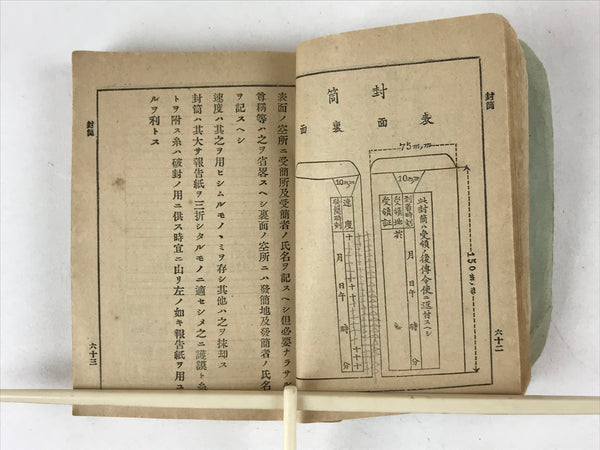 封筒
封筒
表面
裏面
75m,m
10m,m
10m,m
150m,m
此封筒ハ受領ノ後傳令使ニ返付スヘシ
到着時刻
月
日
午
時
分
受領地
於
受領証
速度
十
月
日
午
時
分
六十二
表面ノ空所ニ受簡所及受簡者ノ氏名ヲ記スヘシ但必要ナラサル
尊稱等ハ之ヲ省畧スヘシ裏面ノ空所ニハ發簡地及發簡者ノ氏名
ヲ記スヘシ
速度ハ其之ヲ用ヒシムルモノヽミヲ存シ其他ハ之ヲ抹却ス
封筒ハ其大サ報告紙ヲ三折シタルモノニ適セシメ之ニ護謨ト糸
トヲ附ス糸ハ破封ノ用ニ供ス時宜ニ由リ左ノ如キ報告紙ヲ用ユ
ルヲ利トス
封筒
六十三